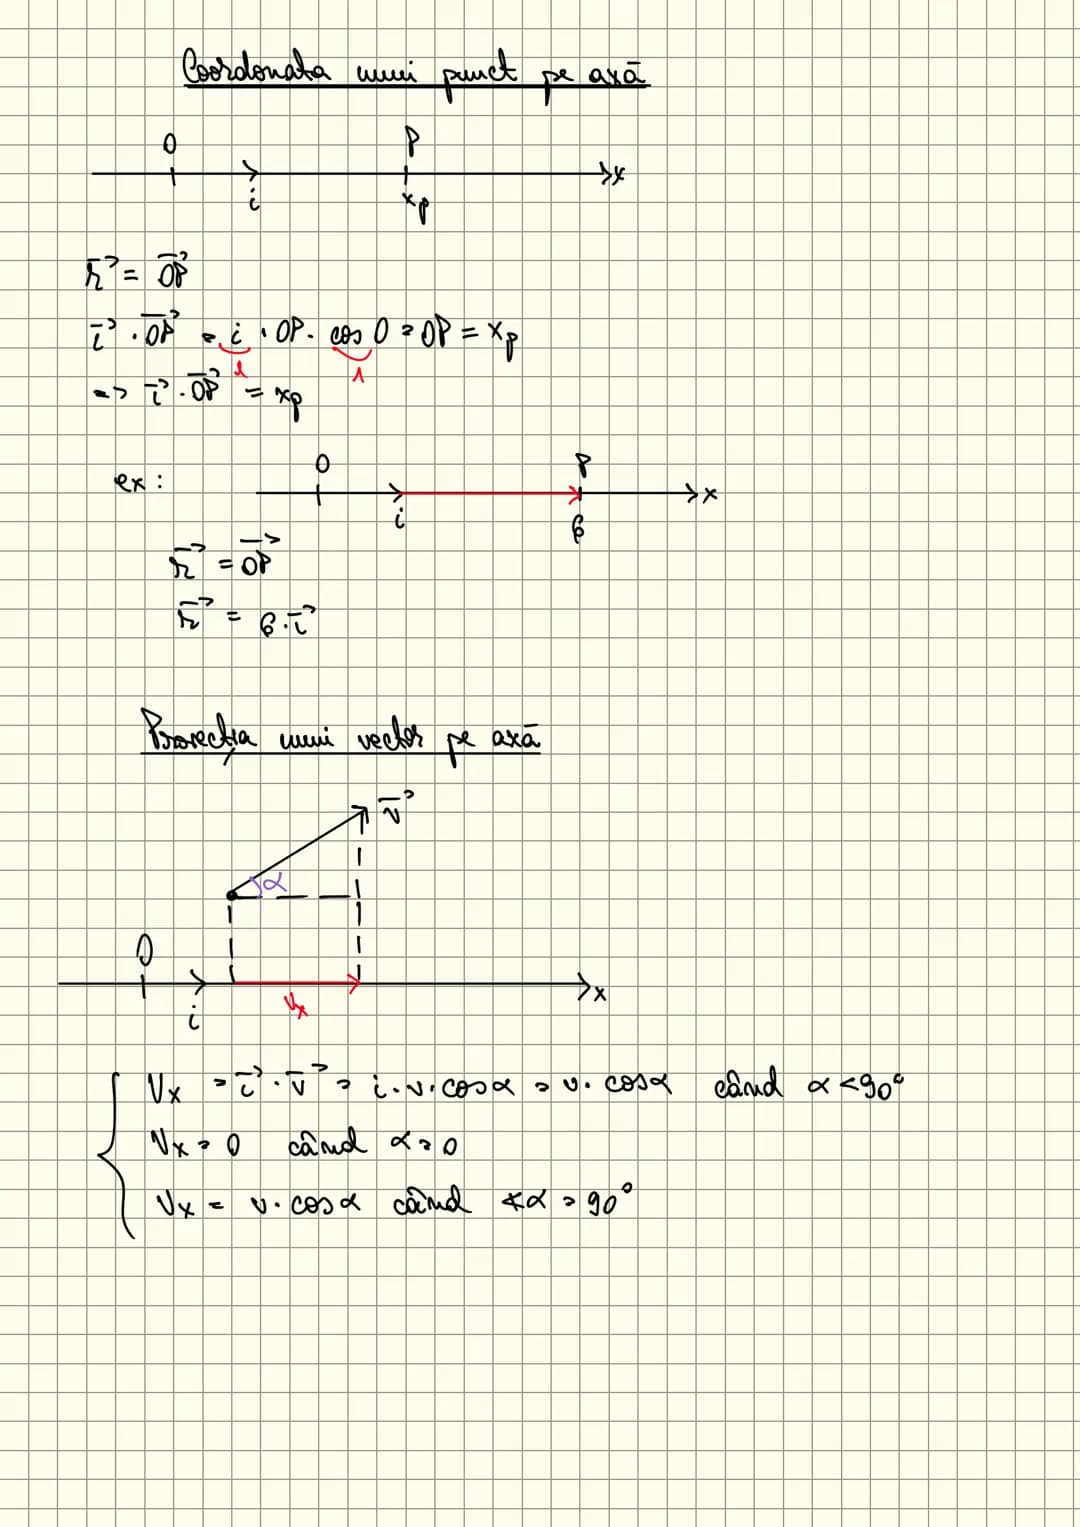 Coordonata unui punct pe axă
O P
i x_P x
r⃗ = OP⃗
i⃗ · OP⃗ = i · OP · cos 0 = OP = x_P
1 1
=> i⃗ · OP⃗ = x_P
ex: O P
i 6 x
r⃗ = OP⃗
r⃗ = 6 · i⃗
Proiecția unui vector pe axă
v⃗
α
O
i v_x x
V_x = i⃗ · v⃗ = i · v · cos α = v · cos α când α < 90°
V_x = 0 când α = 0
V_x = v · cos α când ∢α = 90°